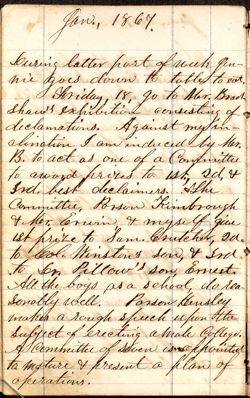 Jan., 1867.
During latter part of week Jen-
nie goes down to table to eat.
Friday 18, go to Mr. Brad-
shaw's exhibition consisting of
declamations. Against my in-
clination I am induced by Mr.
B. to act as one of a Committee
to award prizes to 1st, 2d, &
3rd, best declaimers. The
Committee, Parson Kimbrough
& Mr. Erwin & myself give
1st prize to Sam. Crutcher, 2d
to Col. Winston's son, & 3rd
to Dr. Pillow's son, Ernest.
All the boys as a school, do rea-
sonably well. Parson Hensley
makes a rough speech upon the
subject of erecting a male College.
A Committee of seven is appointed
to mature & present a plan of
operations.